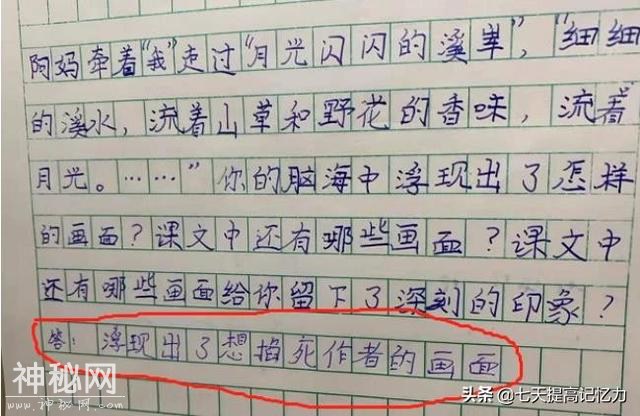 阿妈牵着"我"走过"月光闪闪的溪岸","细细
的溪水，流着山草和野花的香味，流着
月光。……"你的脑海中浮现出了怎样
的画面？课文中还有哪些画面？课文中
还有哪些画面给你留下了深刻的印象？
答：浮现出了想掐死作者的画面
神秘网
www.神秘网.com
头条 @七天提高记忆力